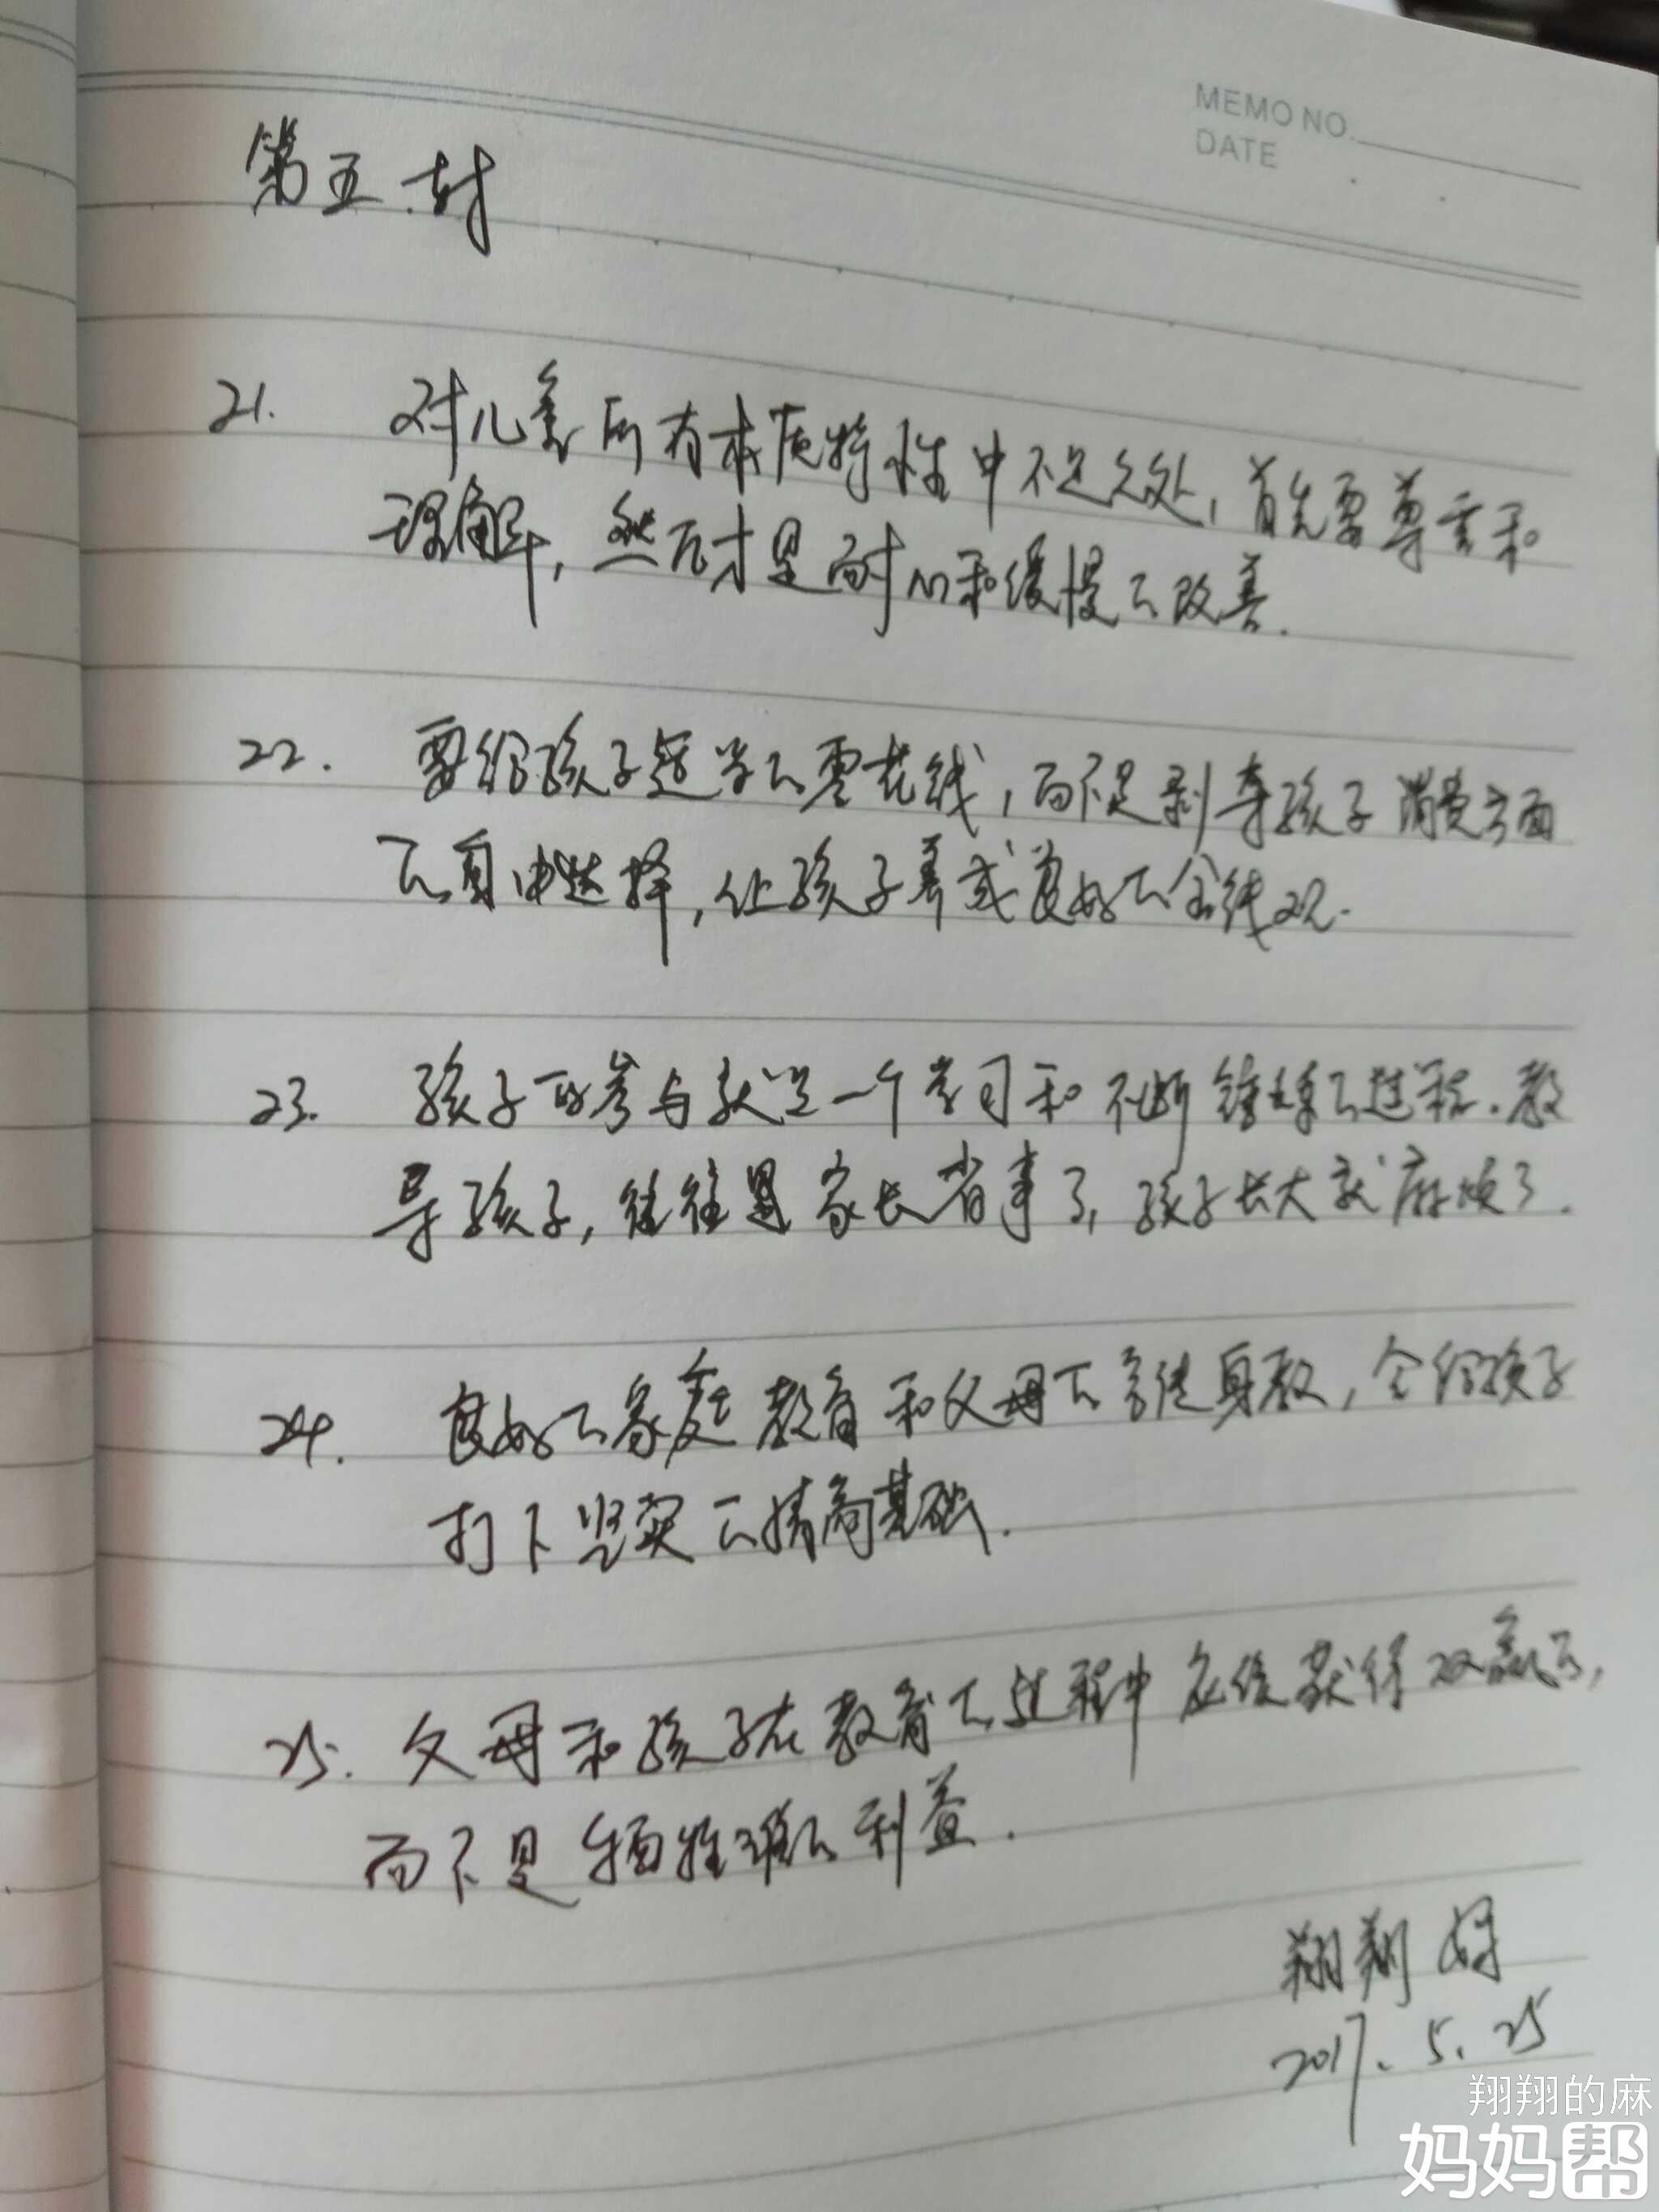 MEMO NO.
DATE
第五封
21. 对儿童所有本质特性中不足之处，首先要尊重和
理解，然后才是耐心和缓慢的改善.
22. 要给孩子适当的零花钱，而不是剥夺孩子消费方面
的自由选择，让孩子养成良好的金钱观.
23. 孩子的参与就是一个学习和不断锤炼的过程.教
导孩子，往往是家长省事了，孩子长大就麻烦了.
24. 良好的家庭教育和父母的言传身教，会给孩子
打下坚实的情商基础.
25. 父母和孩子在教育的过程中应该获得双赢的，
而不是牺牲谁的利益.
翔翔妈
2017.5.25
翔翔的麻
妈妈帮